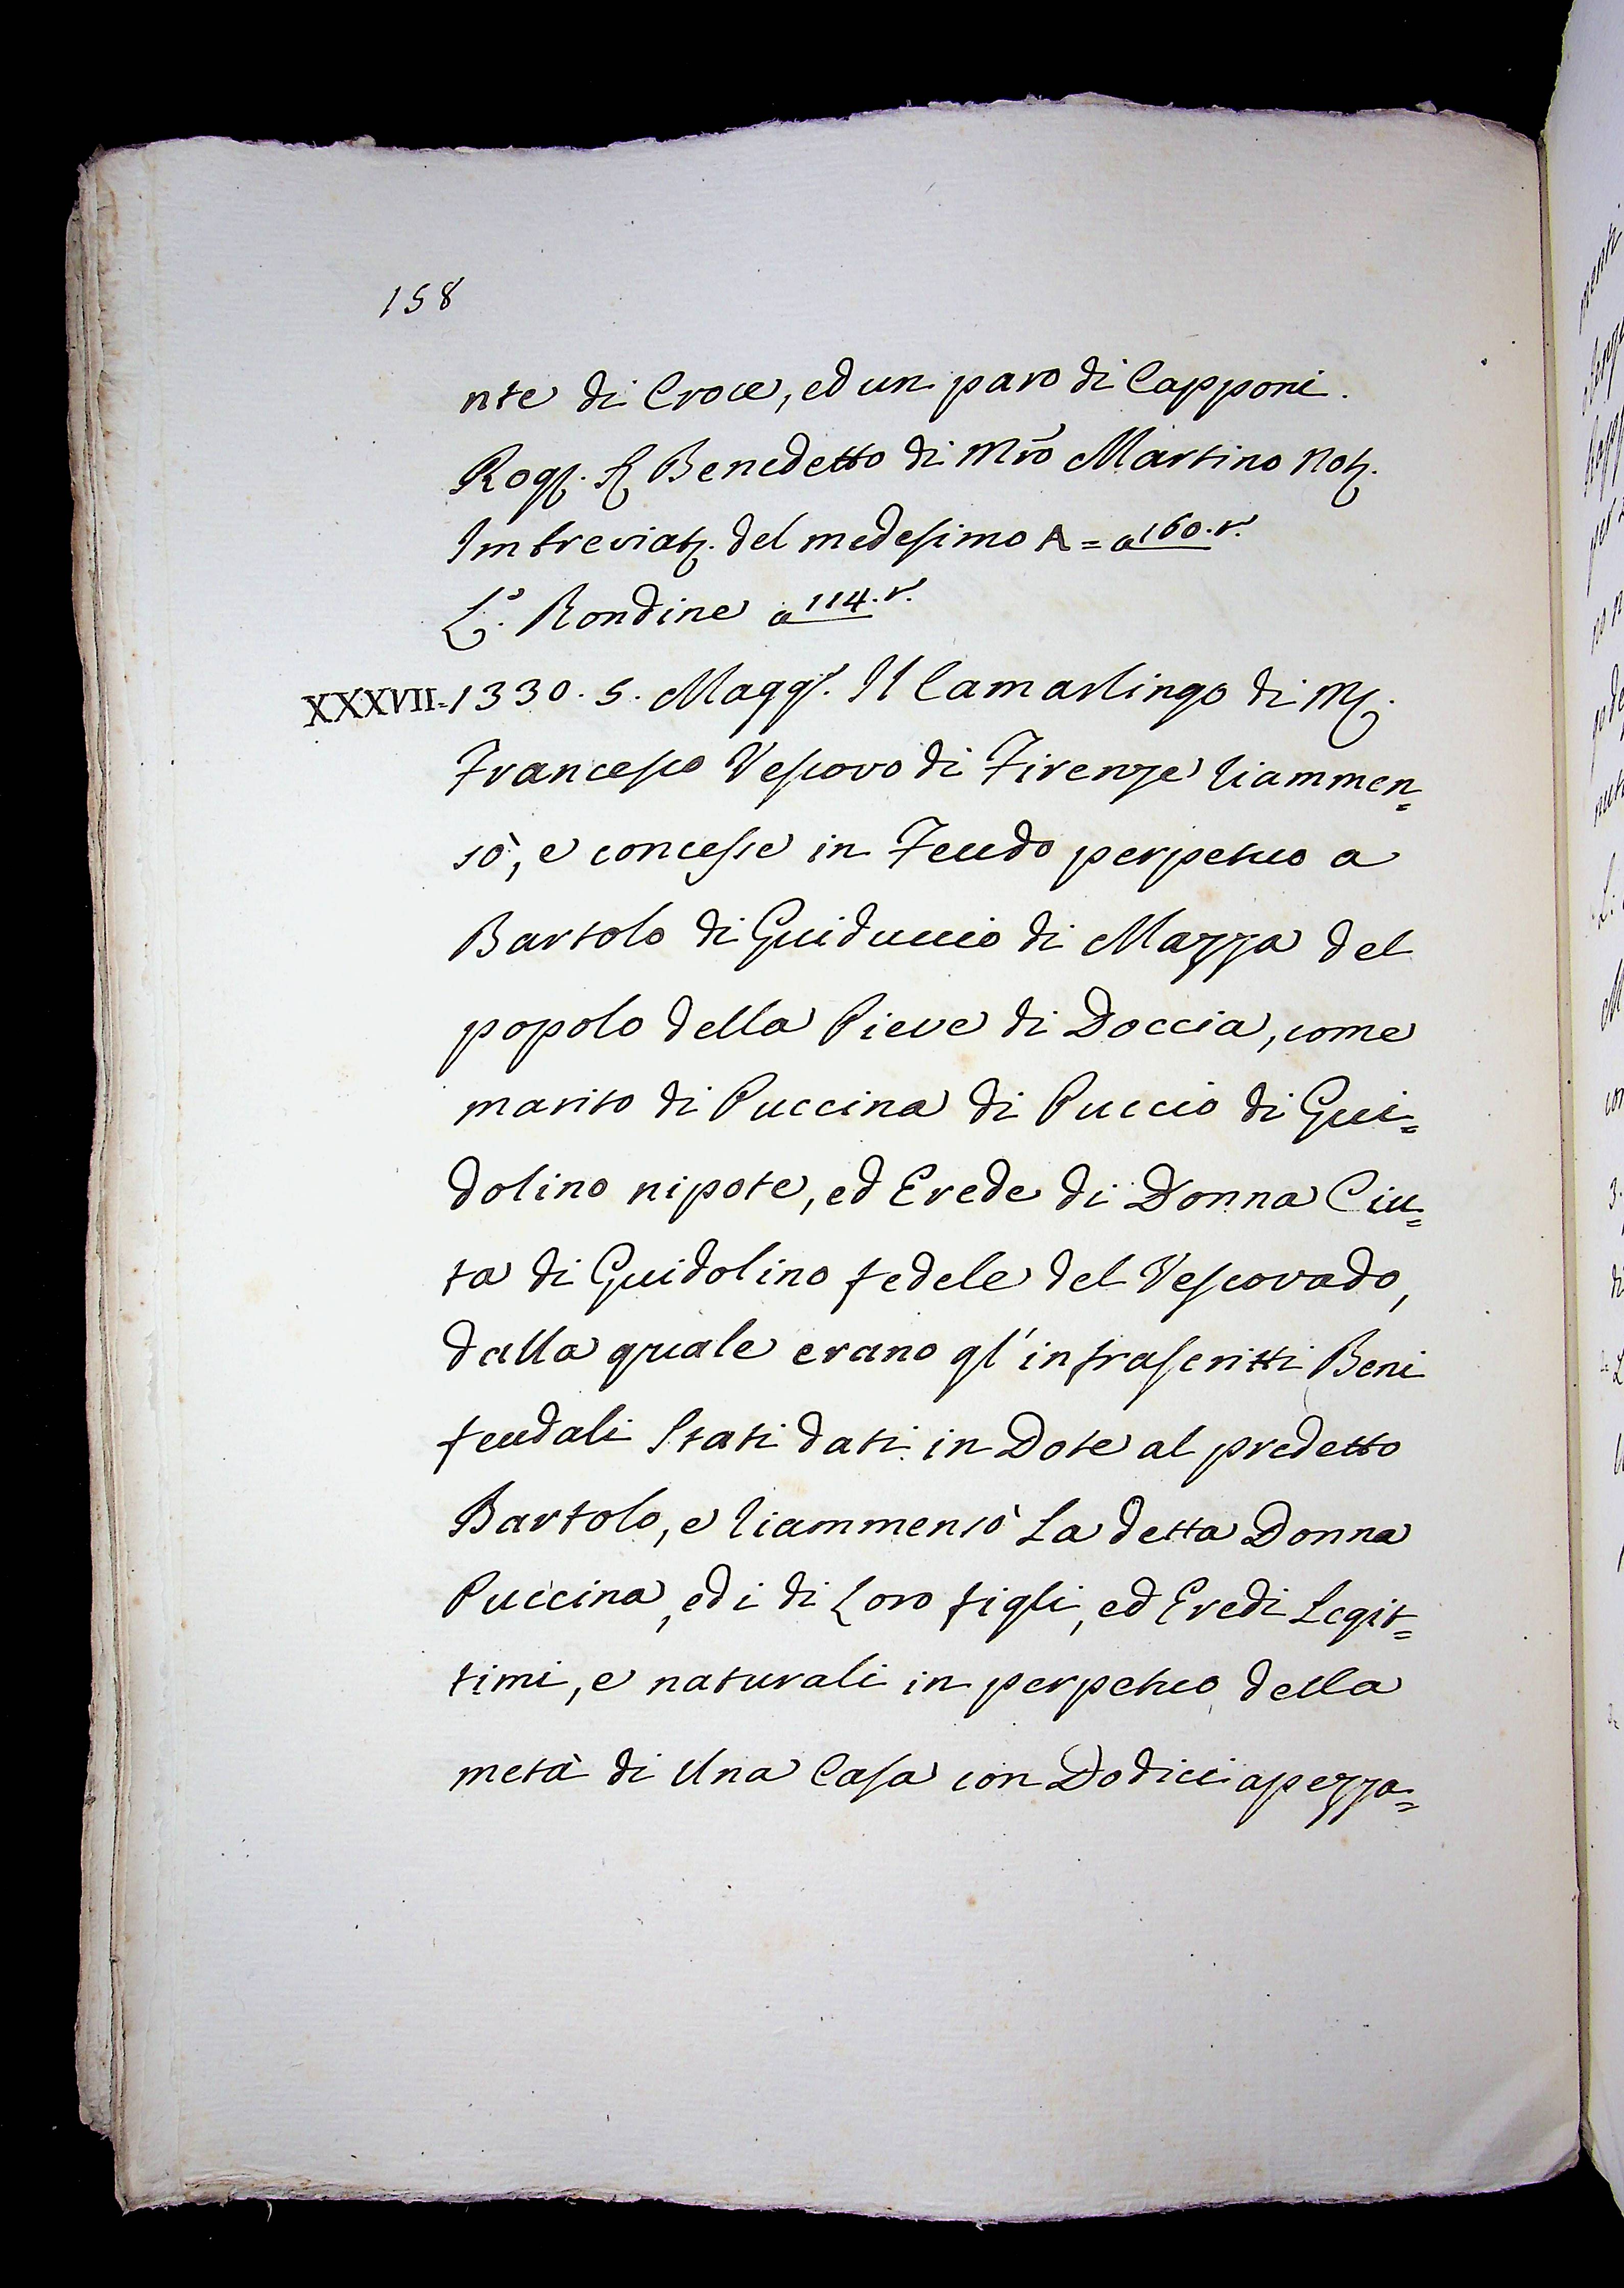 158
nte di Croce, ed un paro di Capponi.
Rog. S. Benedetto di Mro Martino Not.
Imbreviat. del medesimo A = a 160. r.
L.o Rondine a 114. r.
XXXVII = 1330. 5. Magg. Il Camarlingo di M.
Francesco Vescovo di Firenze liammen=
sò, e concesse in Feudo perpetuo a
Bartolo di Guiduccio di Mazza del
popolo della Pieve di Doccia, come
marito di Puccina di Puccio di Gui=
dolino nipote, ed Erede di Donna Ciu=
ta di Guidolino fedele del Vescovado,
dalla quale erano gl'infrascritti Beni
feudali Stati dati in Dote al predetto
Bartolo, e liammensò La detta Donna
Puccina, ed i di Loro figli, ed Eredi Legit=
timi, e naturali in perpetuo della
metà di Una Casa con Dodici apezza=